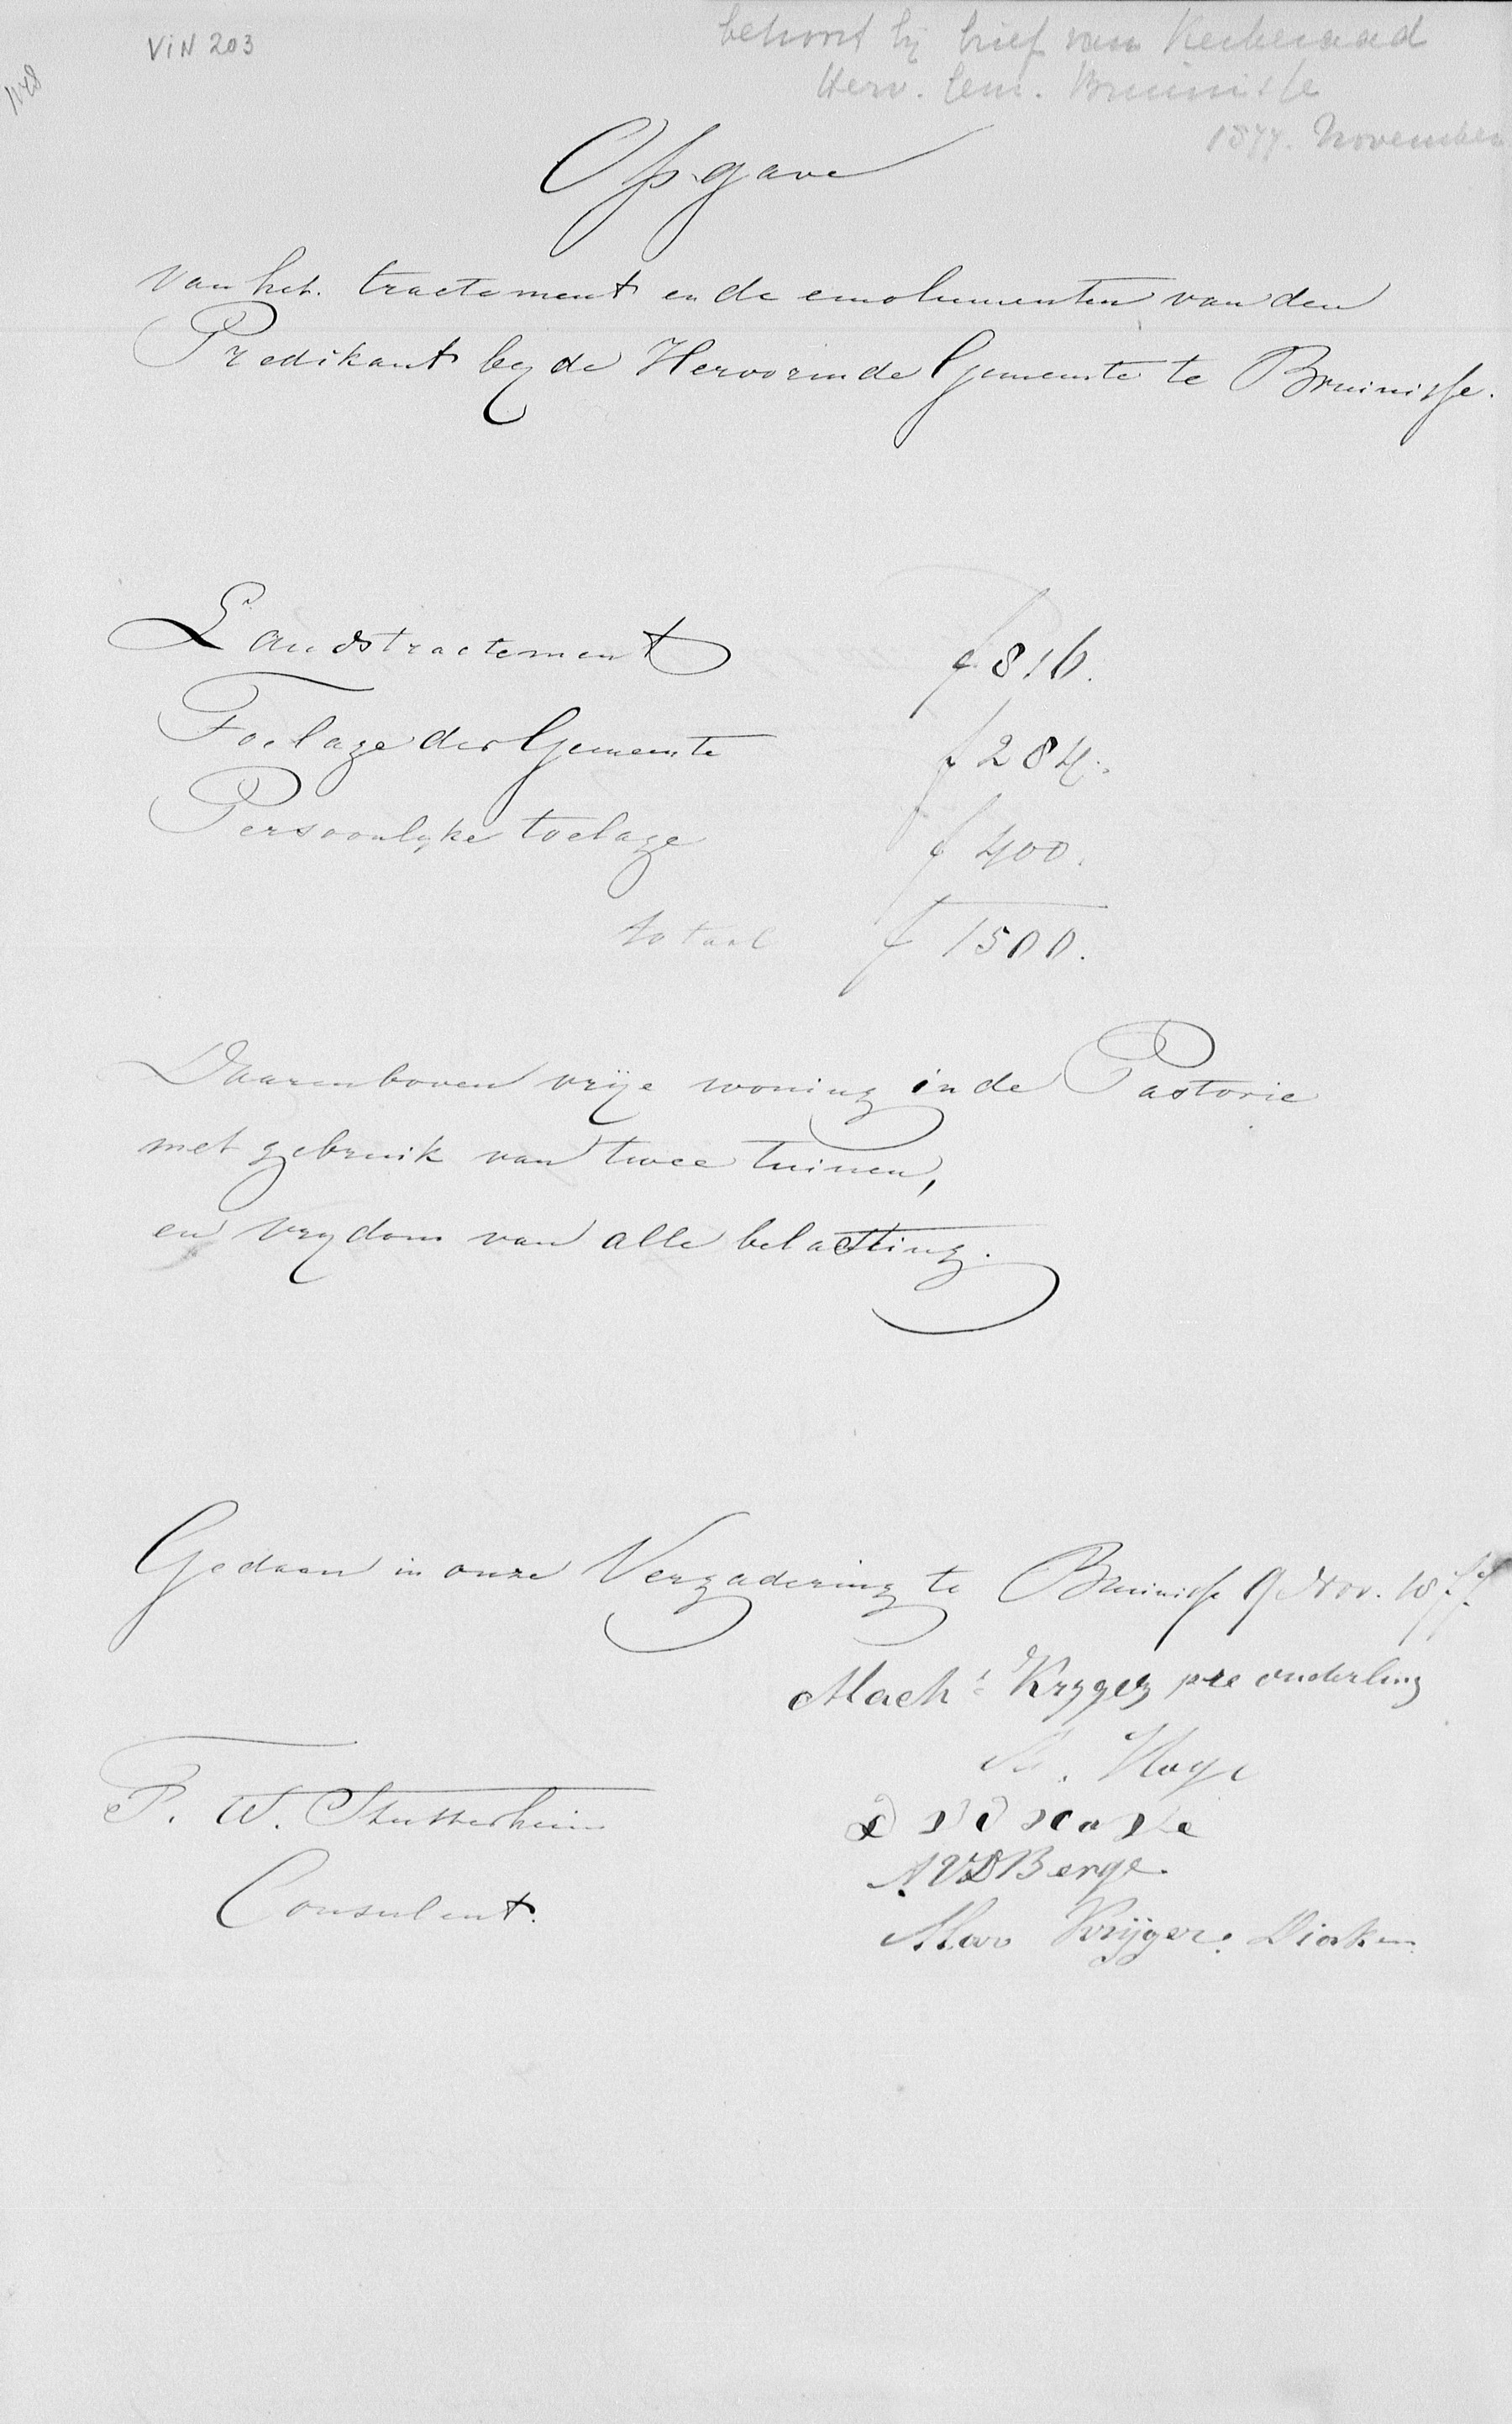 VIN 203
1148
behoort bij brief van Kerkeraad
Herv. Gem. Bruinisse
1877. November
Opgave
van het. tractement en de emolumenten van den
Predikant by de Hervormde Gemeente te Bruinisse.
Landstractement f 816.
Toelage der Gemeente f 284.
Persoonlyke toelage f 400.
totaal f 1500.
Daarenboven vrije woning in de Pastorie
met gebruik van twee tuinen,
en vrydom van alle belasting.
Gedaan in onze Vergadering te Bruinisse 9 Nov. 1877.
Mach. Kryger pre ouderling
Hage
F. W. Stutterheim
A VD Berge.
Consulent.
Mar Krijger. Diaken